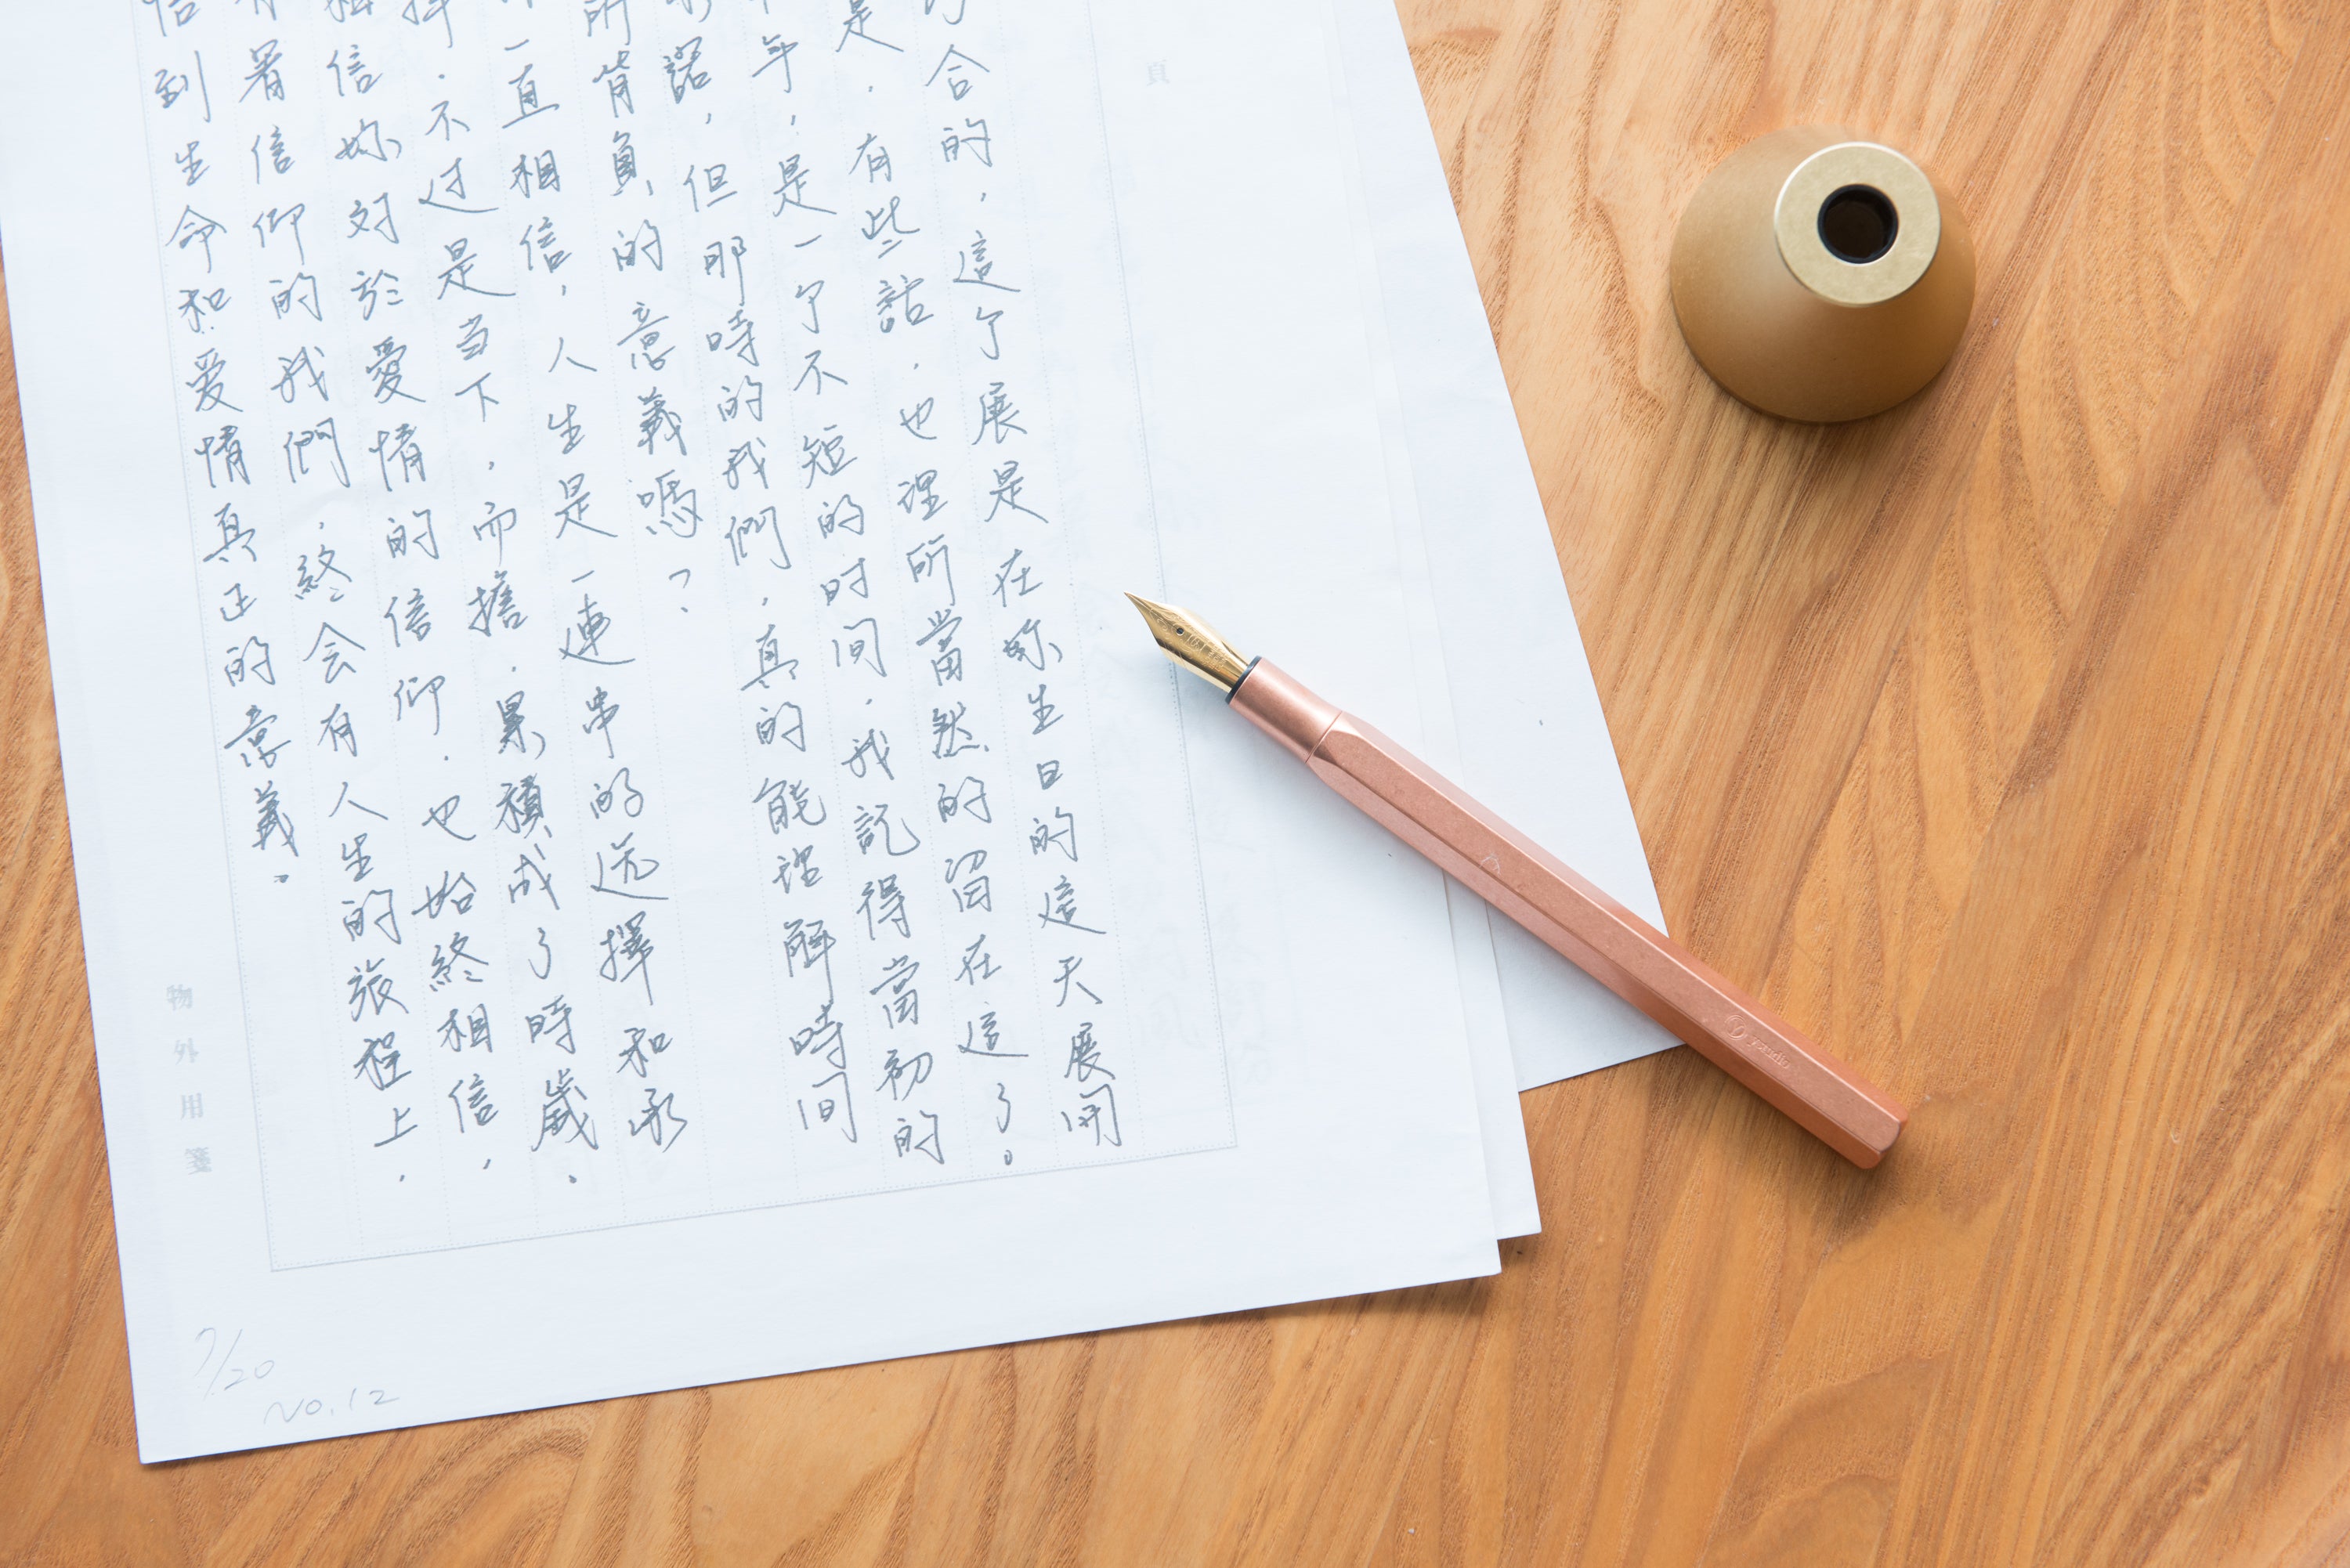 合的，這个展是在妳生日的這天展開
是，有些話，也理所當然的留在這了。
年，是一个不短的时间，我記得當初的
諾，但那時的我們，真的能理解時间
所背負的意義嗎？
一直相信，人生是一連串的选擇和承
，不过是当下，而擔，累積成了時歲。
信妳对於愛情的信仰，也始終相信，
著信仰的我們，終会有人生的旅程上，
到生命和爱情真正的意義。
頁
物外用箋
7/20
NO.12